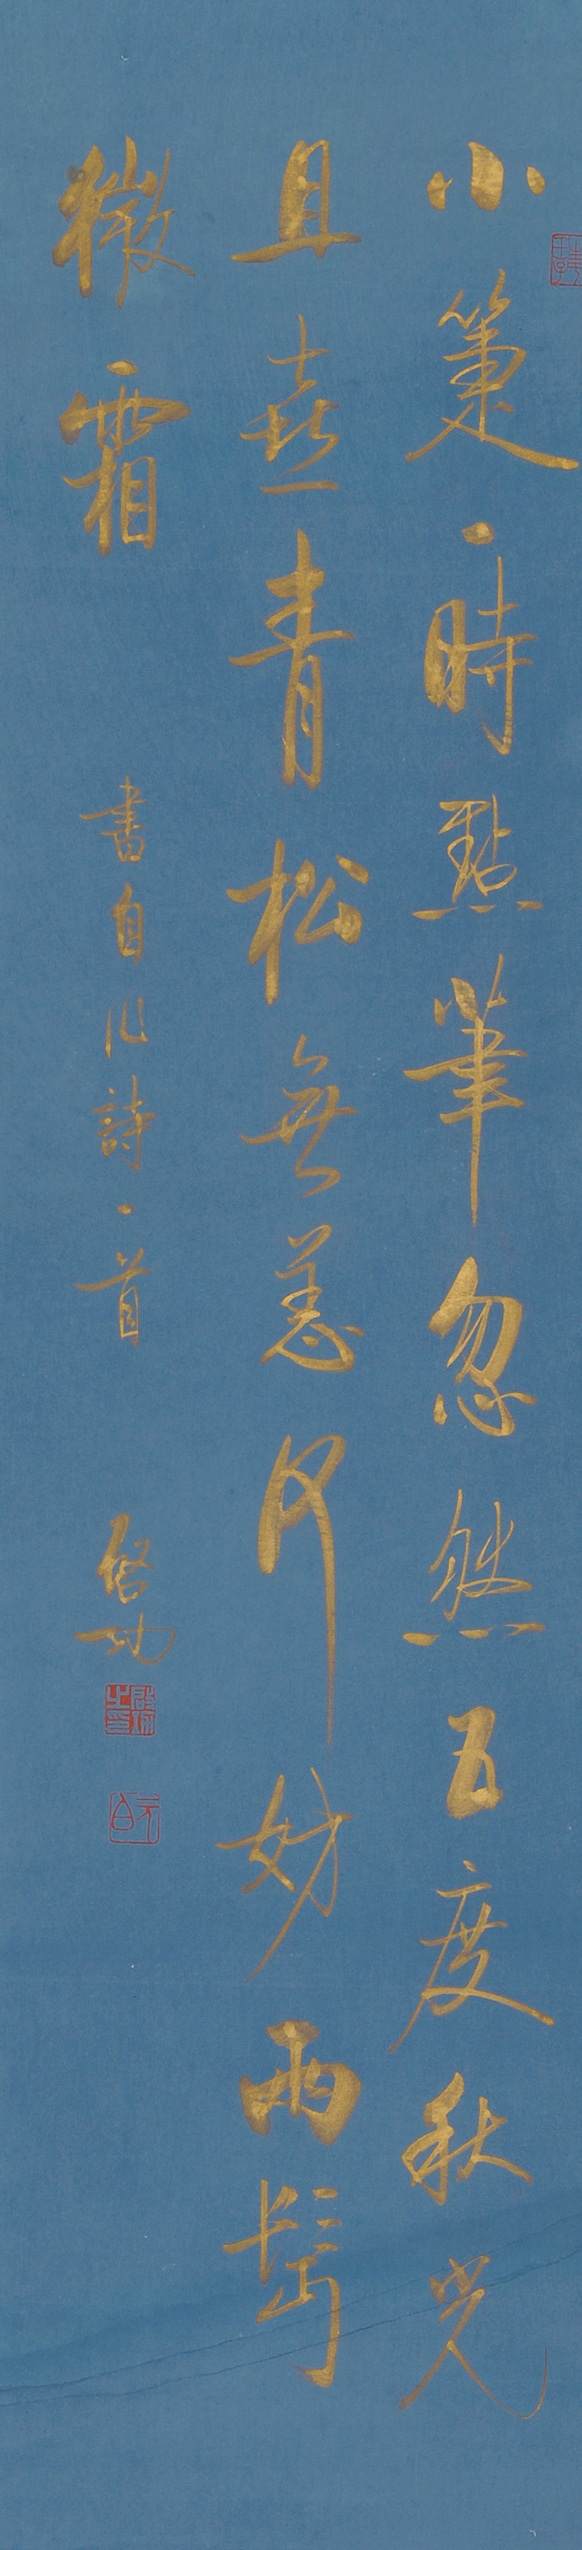 小箑一時點筆忽然五度秋光
且喜青松無恙何妨兩鬢
微霜 書自作詩一首 啓功
啟功之印
元白